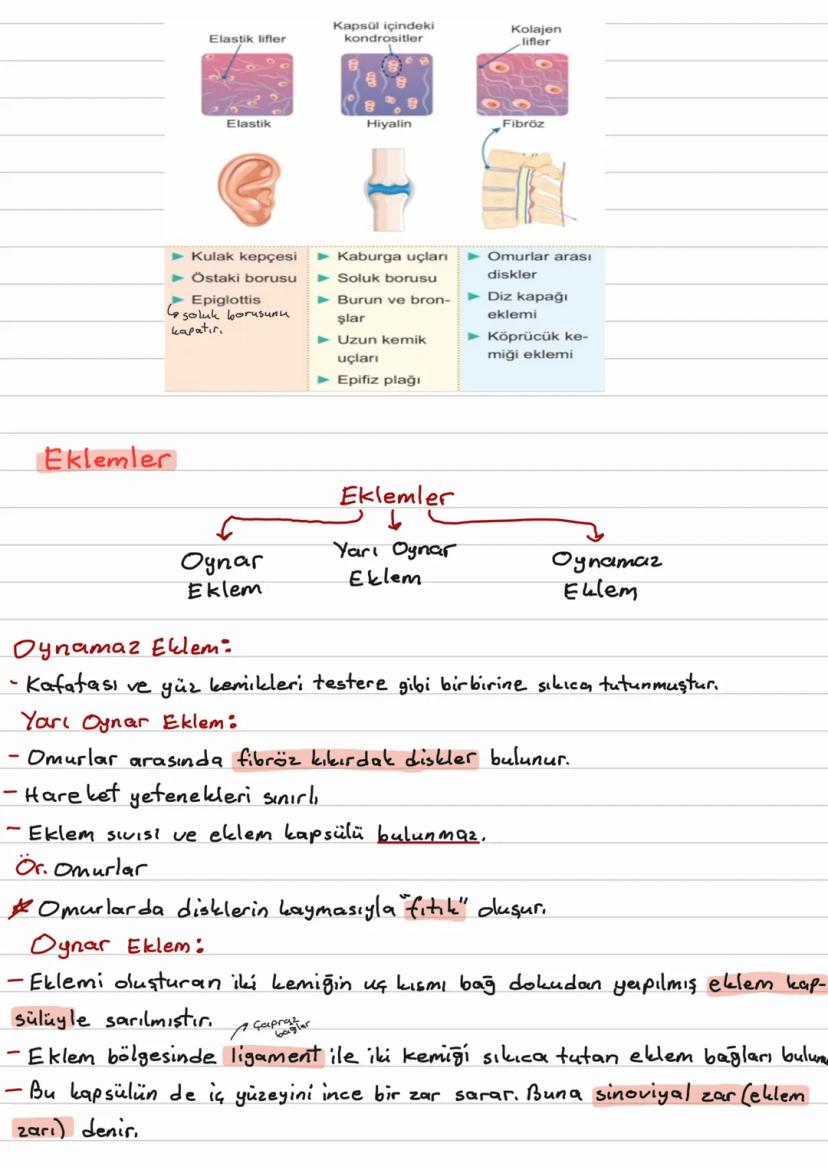 Elastik lifler
Kapsül içindeki
kondrositler
Kolajen
lifler
Elastik
Hiyalin
Fibröz
► Kulak kepçesi
► Östaki borusu
► Epiglottis
↳ soluk borusunu
kapatır.
► Kaburga uçları
► Soluk borusu
► Burun ve bron-
şlar
► Uzun kemik
uçları
► Epifiz plağı
► Omurlar arası
diskler
► Diz kapağı
eklemi
► Köprücük ke-
miği eklemi
Eklemler
Eklemler
Oynar
Eklem
Yarı Oynar
Eklem
Oynamaz
Eklem
Oynamaz Eklem:
- Kafatası ve yüz kemikleri testere gibi birbirine sıkıca tutunmuştur.
Yarı Oynar Eklem:
- Omurlar arasında fibröz kıkırdak diskler bulunur.
- Hareket yetenekleri sınırlı
- Eklem sıvısı ve eklem kapsülü bulunmaz.
Ör. Omurlar
* Omurlarda disklerin kaymasıyla "fıtık" oluşur.
Oynar Eklem:
- Eklemi oluşturan iki kemiğin uç kısmı bağ dokudan yapılmış eklem kap-
sülüyle sarılmıştır.
↗ Çapraz
bağlar
- Eklem bölgesinde ligament ile iki kemiği sıkıca tutan eklem bağları bulun
- Bu kapsülün de iç yüzeyini ince bir zar sarar. Buna sinoviyal zar (eklem
zarı) denir.